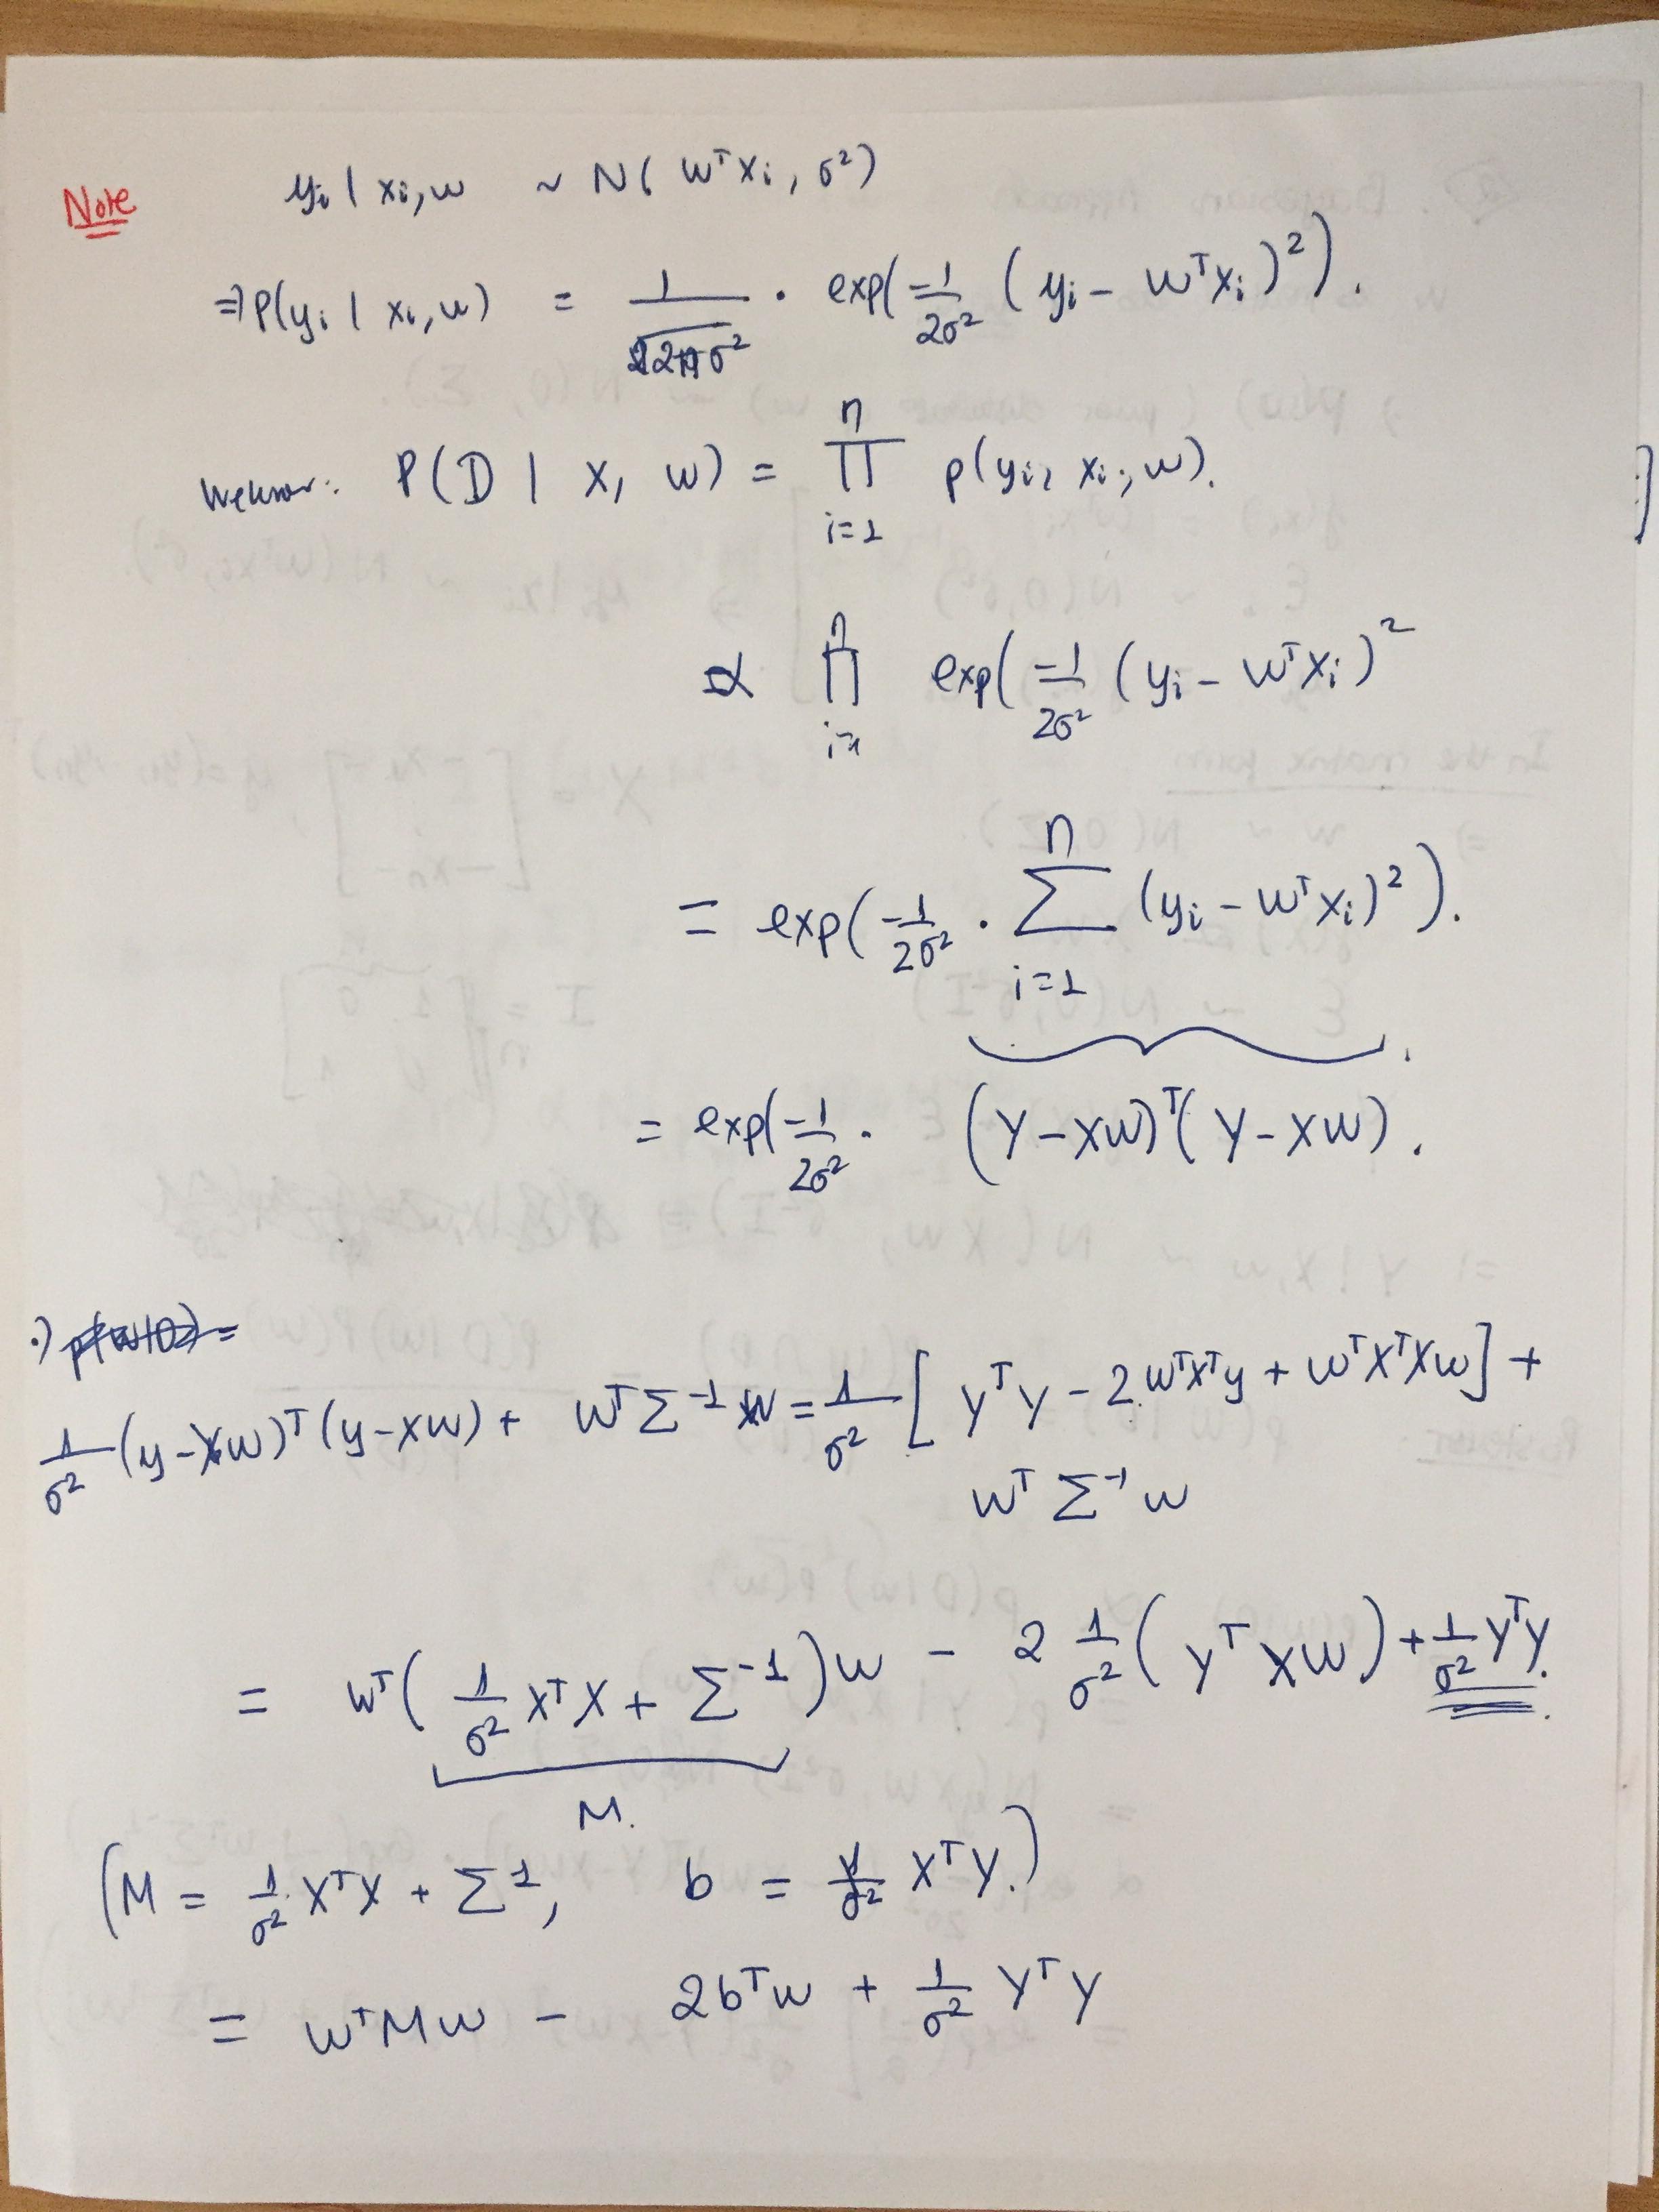 Note yᵢ | xᵢ, w ~ N( wᵀxᵢ, σ²)
⇒ P(yᵢ | xᵢ, w) = 1/√(2πσ²) · exp(-1/2σ² (yᵢ - wᵀxᵢ)²).
We know: P(D | X, w) = ∏ᵢ₌₁ⁿ p(yᵢ, xᵢ; w).
∝ ∏ᵢ₌₁ⁿ exp(-1/2σ² (yᵢ - wᵀxᵢ)²
= exp(-1/2σ² · ∑ᵢ₌₁ⁿ (yᵢ - wᵀxᵢ)²).
= exp(-1/2σ² · (Y - XW)ᵀ(Y - XW).
·) p(w|D) =
1/σ² (y - Xw)ᵀ(y - Xw) + wᵀΣ⁻¹w = 1/σ² [yᵀy - 2wᵀXᵀy + wᵀXᵀXw] +
wᵀΣ⁻¹w
= wᵀ(1/σ² XᵀX + Σ⁻¹)w - 2 1/σ² (yᵀXw) + 1/σ² yᵀy.
M.
(M = 1/σ² XᵀX + Σ⁻¹, b = 1/σ² Xᵀy.)
= wᵀMw - 2bᵀw + 1/σ² yᵀy